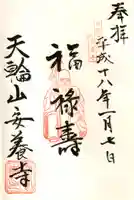 奉拝
平成十八年一月七日
福禄寿
天輪山安養寺